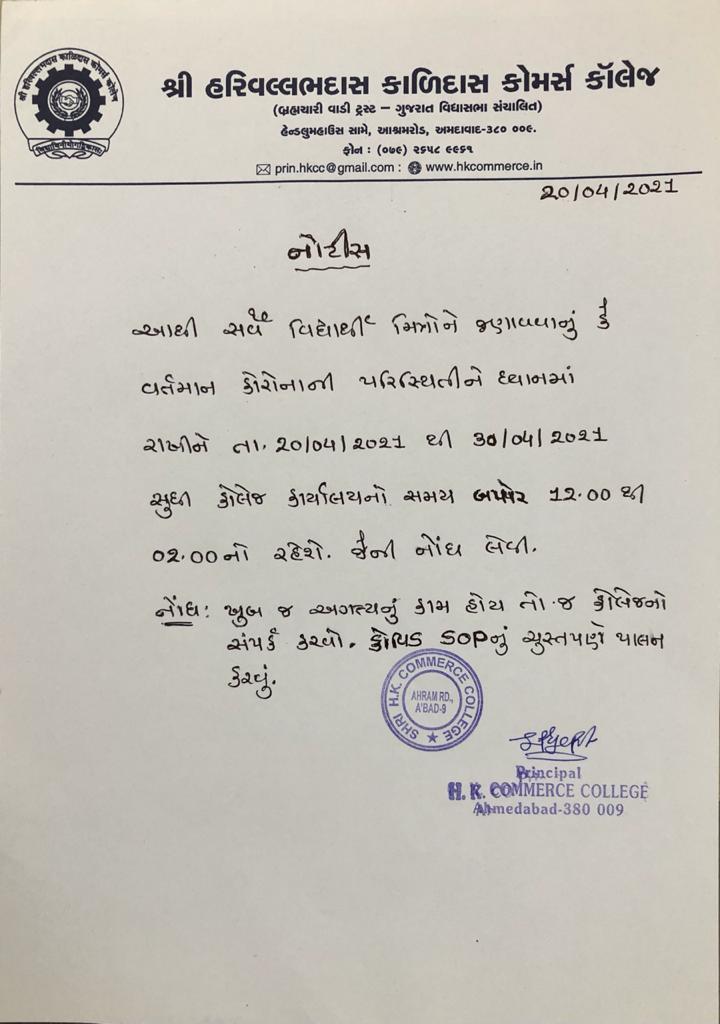 શ્રી હરિવલ્લભદાસ કાળિદાસ કોમર્સ કૉલેજ
શ્રી હરિવલ્લભદાસ કાળિદાસ કોમર્સ કૉલેજ
(બ્રહ્મચારી વાડી ટ્રસ્ટ – ગુજરાત વિદ્યાસભા સંચાલિત)
હેન્ડલુમહાઉસ સામે, આશ્રમરોડ, અમદાવાદ-૩૮૦ ૦૦૯.
ફોન : (૦૭૯) ૨૬૫૮ ૯૯૬૧
prin.hkcc@gmail.com : www.hkcommerce.in
20/04/2021
નોટીસ
આથી સર્વે વિદ્યાર્થી મિત્રોને જણાવવાનું કે
વર્તમાન કોરોનાની પરિસ્થિતીને ધ્યાનમાં
રાખીને તા. 20/04/2021 થી 30/04/2021
સુધી કોલેજ કાર્યાલયનો સમય બપોર 12.00 થી
02.00 નો રહેશે. જેની નોંધ લેવી.
નોંધ: ખુબ જ અગત્યનું કામ હોય તો જ કોલેજનો
સંપર્ક કરવો. કોવિડ SOPનું ચુસ્તપણે પાલન
કરવું.
SHRI H.K. COMMERCE COLLEGE
AHRAM RD.,
A'BAD-9
Principal
H. K. COMMERCE COLLEGE
Ahmedabad-380 009